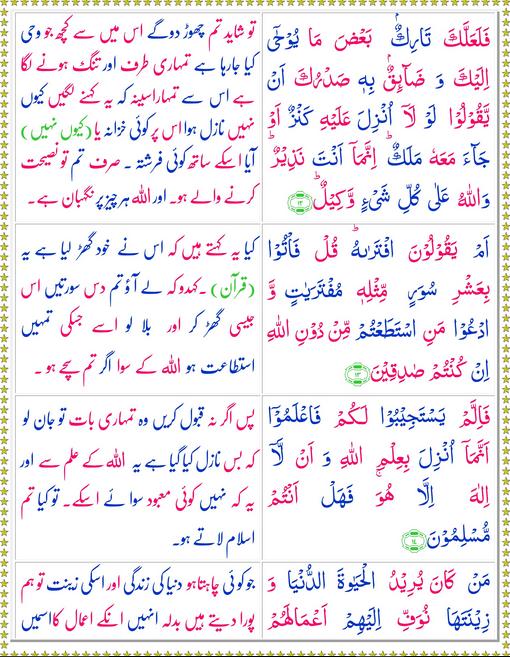 فَلَعَلَّكَ تَارِكٌۢ بَعْضَ مَا يُوْحٰۤى
اِلَيْكَ وَ ضَآئِقٌۢ بِهٖ صَدْرُكَ اَنْ
يَّقُوْلُوْا لَوْ لَاۤ اُنْزِلَ عَلَيْهِ كَنْزٌ اَوْ
جَآءَ مَعَهٗ مَلَكٌ ؕ اِنَّمَاۤ اَنْتَ نَذِيْرٌ ؕ
وَاللّٰهُ عَلٰى كُلِّ شَىْءٍ وَّكِيْلٌ ؕ ۱۲
تو شاید تم چھوڑ دوگے اس میں سے کچھ جو وحی
کیا جارہا ہے تمہاری طرف اور تنگ ہونے لگا
ہے اس سے تمہاراسینہ کہ یہ کہنے لگیں کیوں
نہیں نازل ہوا اس پر کوئی خزانہ یا (کیوں نہیں)
آیا اسکے ساتھ کوئی فرشتہ ۔ صرف تم تو نصیحت
کرنے والے ہو۔ اور اللہ ہر چیز پر نگہبان ہے۔
اَمْ يَقُوْلُوْنَ افْتَرٰىهُ ؕ قُلْ فَاْتُوْا
بِعَشْرِ سُوَرٍ مِّثْلِهٖ مُفْتَرَيٰتٍ وَّ
ادْعُوْا مَنِ اسْتَطَعْتُمْ مِّنْ دُوْنِ اللّٰهِ
اِنْ كُنْتُمْ صٰدِقِيْنَ ۱۳
کیا یہ کہتے ہیں کہ اس نے خود گھڑ لیا ہے یہ
(قرآن) ۔ کہدو کہ لے آؤ تم دس سورتیں اس
جیسی گھڑ کر اور بلا لو اسے جسکی تمہیں
استطاعت ہو اللہ کے سوا اگر تم سچے ہو ۔
فَاِلَّمْ يَسْتَجِيْبُوْا لَكُمْ فَاعْلَمُوْۤا
اَنَّمَاۤ اُنْزِلَ بِعِلْمِ اللّٰهِ وَ اَنْ لَّاۤ
اِلٰهَ اِلَّا هُوَ ۚ فَهَلْ اَنْتُمْ
مُّسْلِمُوْنَ ۱۴
پس اگر نہ قبول کریں وہ تمہاری بات تو جان لو
کہ بس نازل کیا گیا ہے یہ اللہ کے علم سے اور
یہ کہ نہیں کوئی معبود سوائے اسکے۔ تو کیا تم
اسلام لاتے ہو۔
مَنْ كَانَ يُرِيْدُ الْحَيٰوةَ الدُّنْيَا وَ
زِيْنَتَهَا نُوَفِّ اِلَيْهِمْ اَعْمَالَهُمْ
جو کوئی چاہتا ہو دنیا کی زندگی اور اسکی زینت تو ہم
پورا دیتے ہیں بدلہ انہیں انکے اعمال کا اسمیں